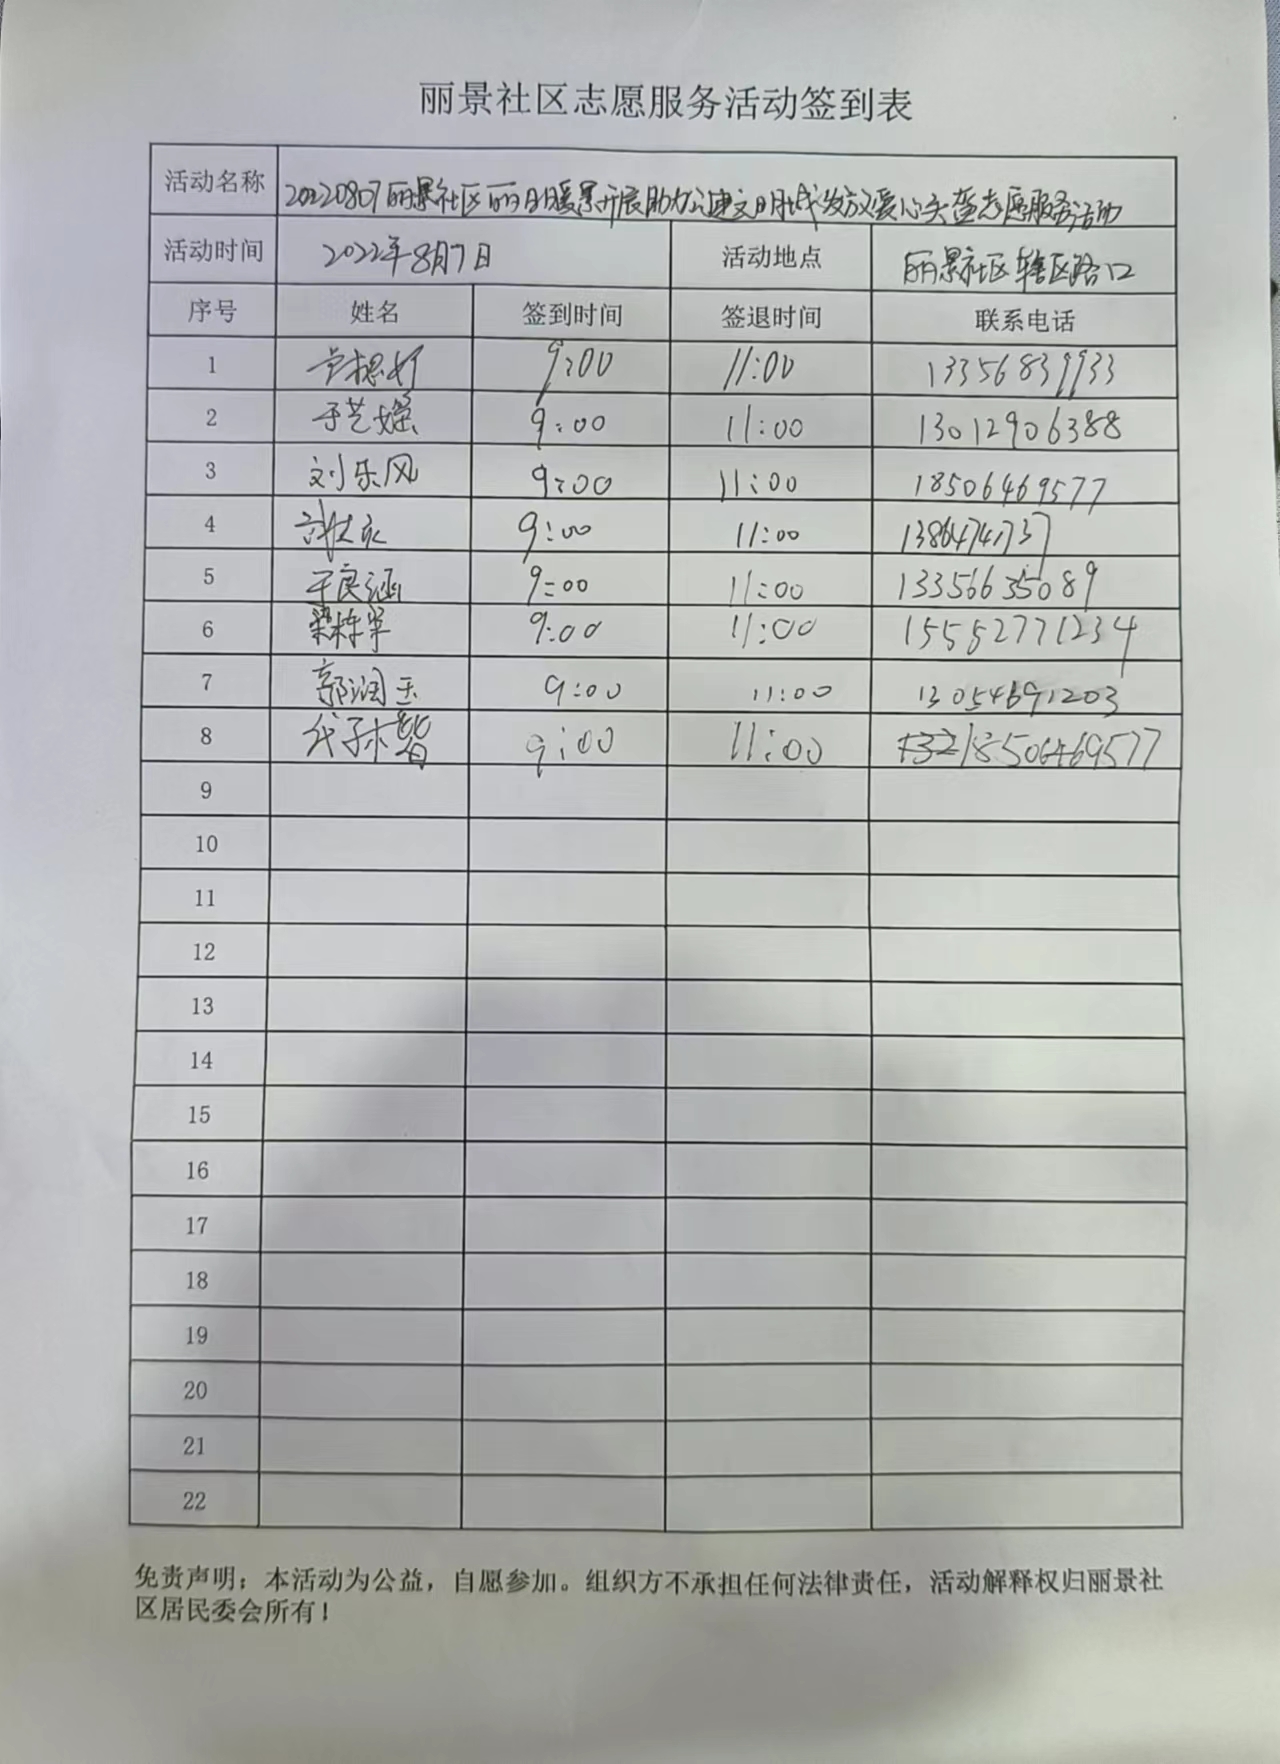 丽景社区志愿服务活动签到表
活动名称 20220807丽景社区丽日暖景开展助力公建文明城发放爱心头盔志愿服务活动
活动时间 2022年8月7日 活动地点 丽景社区辖区路口
序号 姓名 签到时间 签退时间 联系电话
1 9:00 11:00 13356839933
2 于艺燦 9:00 11:00 13012906388
3 刘乐风 9:00 11:00 18506469577
4 9:00 11:00
5 于良涵 9:00 11:00 13356635089
6 梁栋军 9:00 11:00 15552771234
7 郭润玉 9:00 11:00 13054691203
8 9:00 11:00 18506469577
9
10
11
12
13
14
15
16
17
18
19
20
21
22
免责声明：本活动为公益，自愿参加。组织方不承担任何法律责任，活动解释权归丽景社
区居民委会所有！